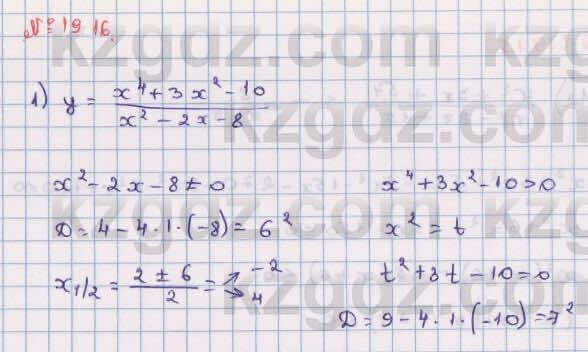 № 19 16.
1) y = (x⁴ + 3x² - 10) / (x² - 2x - 8)
x² - 2x - 8 ≠ 0
D = 4 - 4·1·(-8) = 6²
x₁/₂ = (2 ± 6) / 2 = -2
4
x⁴ + 3x² - 10 > 0
x² = t
t² + 3t - 10 = 0
D = 9 - 4·1·(-10) = 7²
kzgdz.com
kzgdz.com
kzgdz.com
kzgdz.com